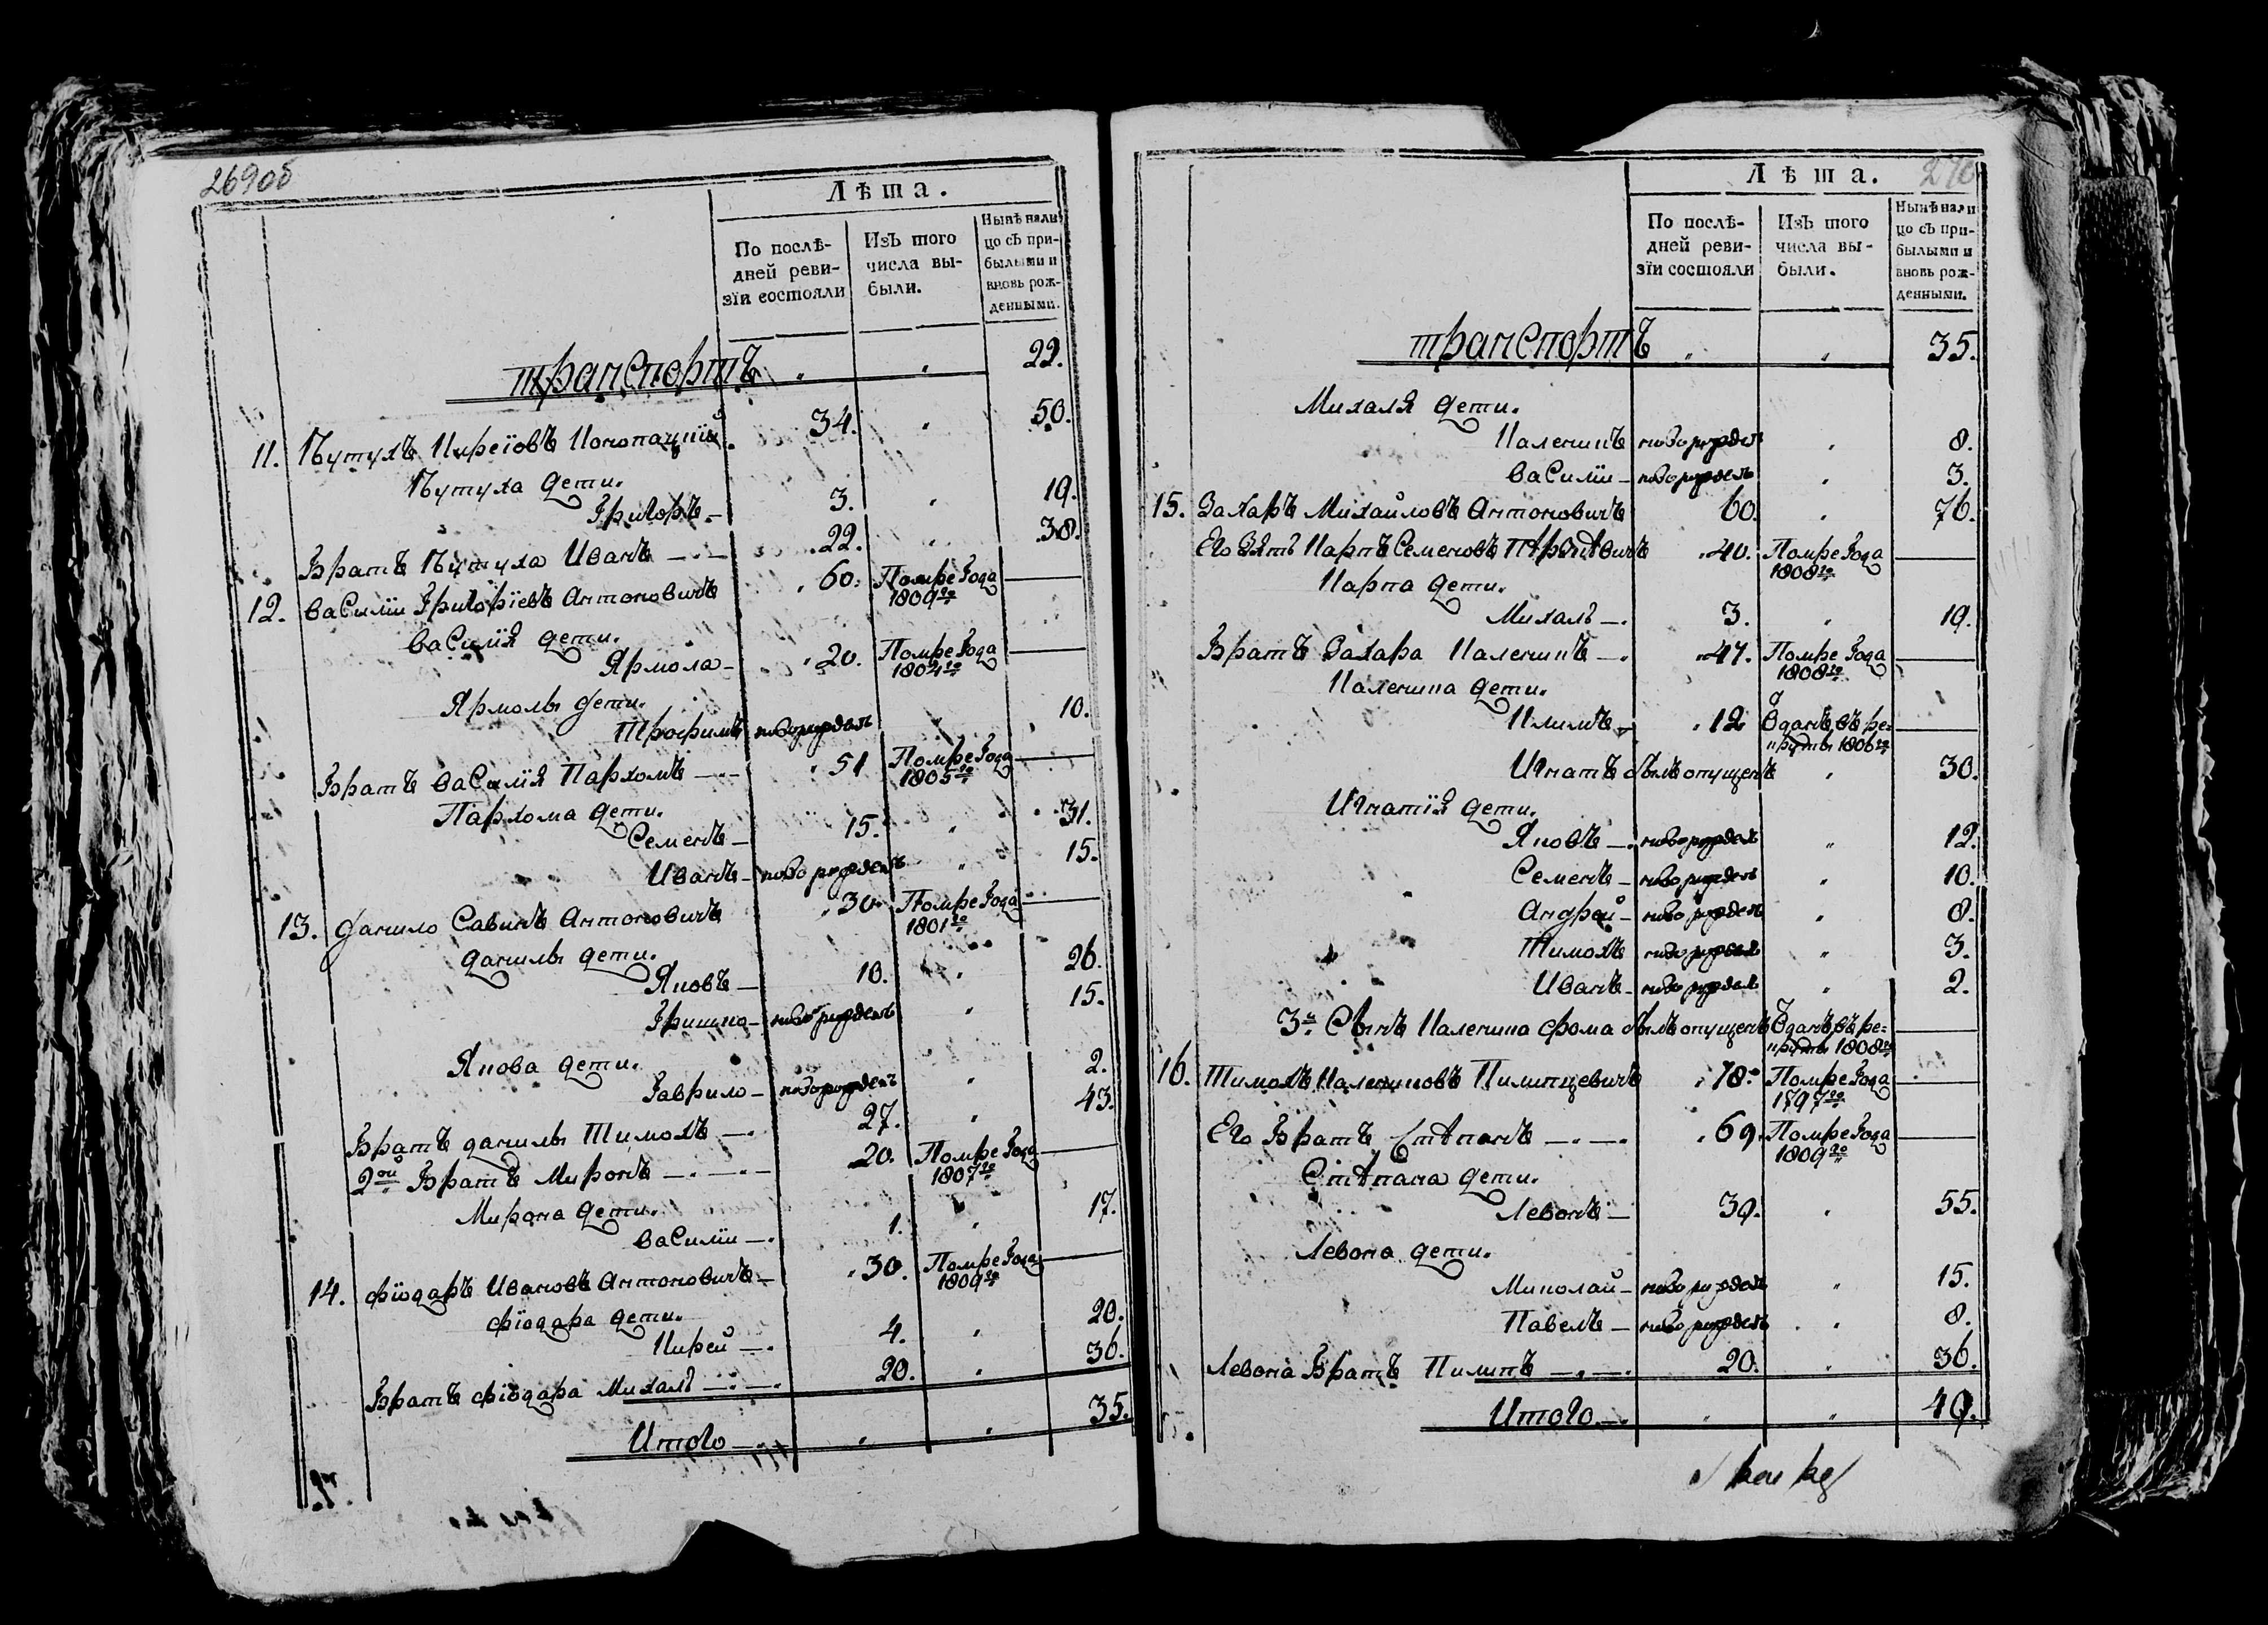 269об
Лѣта.
По послѣ-
дней реви-
зїи состояли
Изъ того
числа вы-
были.
Нынѣ нали
цо съ при-
былыми и
вновь рож-
денными.
транспортъ " " 22.
11. Кирѣїовъ 34. " 50.
дети.
Григоръ — 3. " 19.
Братъ Иванъ — 22. " 38.
12. Василии Григорїевъ Антоновичъ 60. Помре Года 1809го —
Василїя дети.
Ярмола — 20. Помре Года 1804го —
Ярмолы дети.
Трофимъ новорожденъ " 10.
Братъ Василїя Пархомъ — 51 Помре Года 1805го —
Пархома дети.
Семенъ — 15. " 31.
Иванъ — новорожденъ " 15.
13. Данило Савинъ Антоновичъ 30. Помре Года 1801го —
Данилы дети.
Яковъ — 10. " 26.
Гришко — новорожденъ " 15.
Якова дети.
Гаврило — новорожденъ " 2.
Братъ Данилы Тимохъ — 27. " 43.
2ои Братъ Миронъ — 20. Помре Года 1807го —
Мирона дети.
Василии — 1. " 17.
14. Фїодаръ Ивановъ Антоновичъ — 30. Помре Года 1809го —
Фїодара дети.
Кирей — 4. " 20.
Братъ Фїодара Михалъ — 20. " 36.
Итого — " " 35.
270
Лѣта.
По послѣ-
дней реви-
зїи состояли
Изъ того
числа вы-
были.
Нынѣ нали
цо съ при-
былыми и
вновь рож-
денными.
транспортъ " " 35.
Михаля дети.
Каленикъ новорожденъ " 8.
Василии — новорожденъ " 3.
15. Захаръ Михайловъ Антоновичъ 60. " 76.
Его Зять Карпъ Семеновъ 40. Помре Года 1808го —
Карпа дети.
Михалъ — 3. " 19.
Братъ Захара Каленикъ — 47. Помре Года 1808го —
Каленика дети.
Климъ — 12 Отданъ въ рекруты 1806го —
Игнатъ былъ опущенъ " 30.
Игнатїя дети.
Яковъ — новорожденъ " 12.
Семенъ — новорожденъ " 10.
Андрей — новорожденъ " 8.
Тимохъ новорожденъ " 3.
Иванъ — новорожденъ " 2.
3й Сынъ Каленика Фома былъ опущенъ Отданъ въ рекруты 1808го —
16. Тимохъ Калениковъ Пилипцевичъ 78. Помре Года 1797го —
Его Братъ Стѣпанъ — 69. Помре Года 1809го —
Стѣпана дети.
Левонъ — 39. " 55.
Левона дети.
Миколай — новорожденъ " 15.
Павелъ — новорожденъ " 8.
Левона Братъ Пилипъ — 20. " 36.
Итого — " " 40.